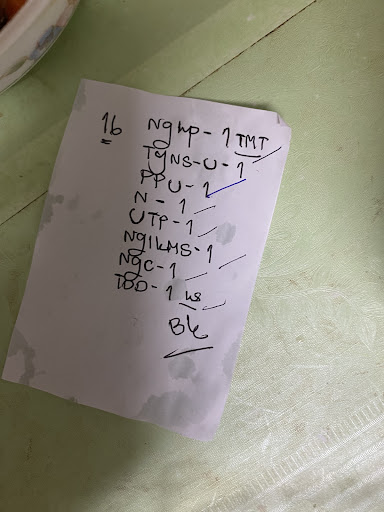 16 Nghp - 1 TMT
TGNS-U-1
PPU-1
N-1
UTP-1
Ng1kMS-1
NgC-1
TDD-1 hs
Bk